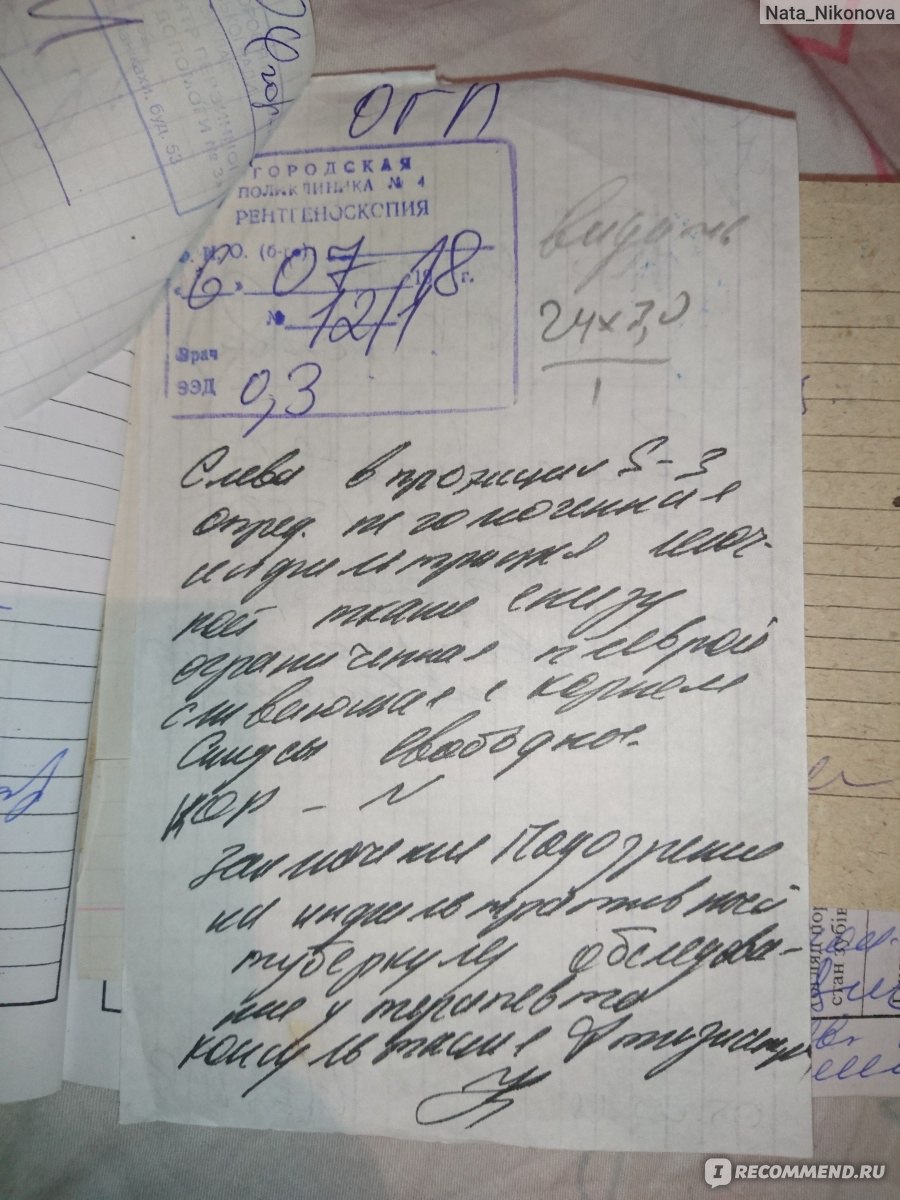 Nata_Nikonova
ОГП
ГОРОДСКАЯ
ПОЛИКЛИНИКА № 4
РЕНТГЕНОСКОПИЯ
Ф. И. О. (б-го)
"6" 07 1918 г.
№ 12/1
Врач
ЭЭД 0,3
видать
24х3,0
1
Слева в проекции S-3
опред. негомогенная
инфильтрация легоч-
ной ткани снизу
ограниченная плеврой
сливающая с корнем
Синусы свободные.
Кор - N
Заключение Подозрение
на инфильтративный
туберкулез обследова-
ние у терапевта
консультация фтизиатра
буд. 53
стан зубів
IRECOMMEND.RU